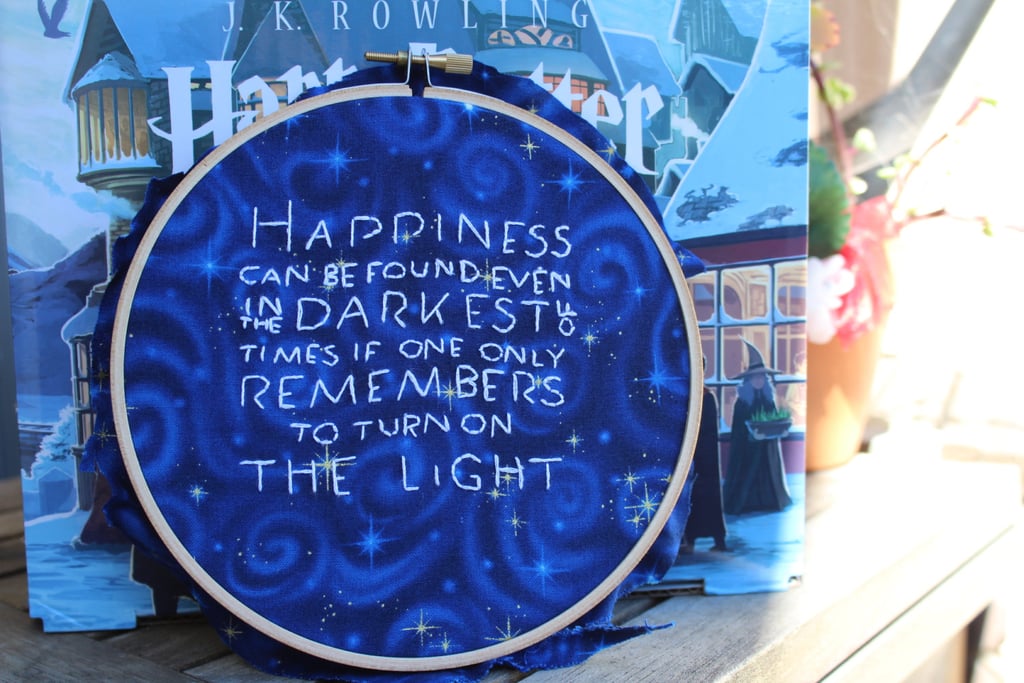 J. K. ROWLING
Harry Potter
HAPPINESS
CAN BE FOUND EVEN
IN THE DARKEST OF
TIMES IF ONE ONLY
REMEMBERS
TO TURN ON
THE LIGHT